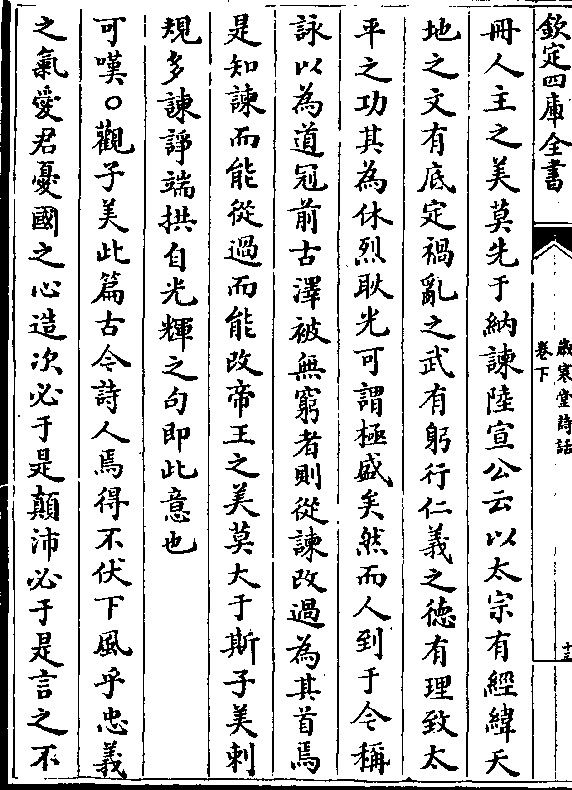 欽定四庫全書
歲寒堂詩話
卷下
十三
冊人主之美莫先于納諫陸宣公云以太宗有經緯天
地之文有底定禍亂之武有躬行仁義之德有理致太
平之功其為休烈耿光可謂極盛矣然而人到于今稱
詠以為道冠前古澤被無窮者則從諫改過為其首焉
是知諫而能從過而能改帝王之美莫大于斯子美刺
規多諫諍端拱自光輝之句即此意也
可嘆○觀子美此篇古今詩人焉得不伏下風乎忠義
之氣愛君憂國之心造次必于是顛沛必于是言之不